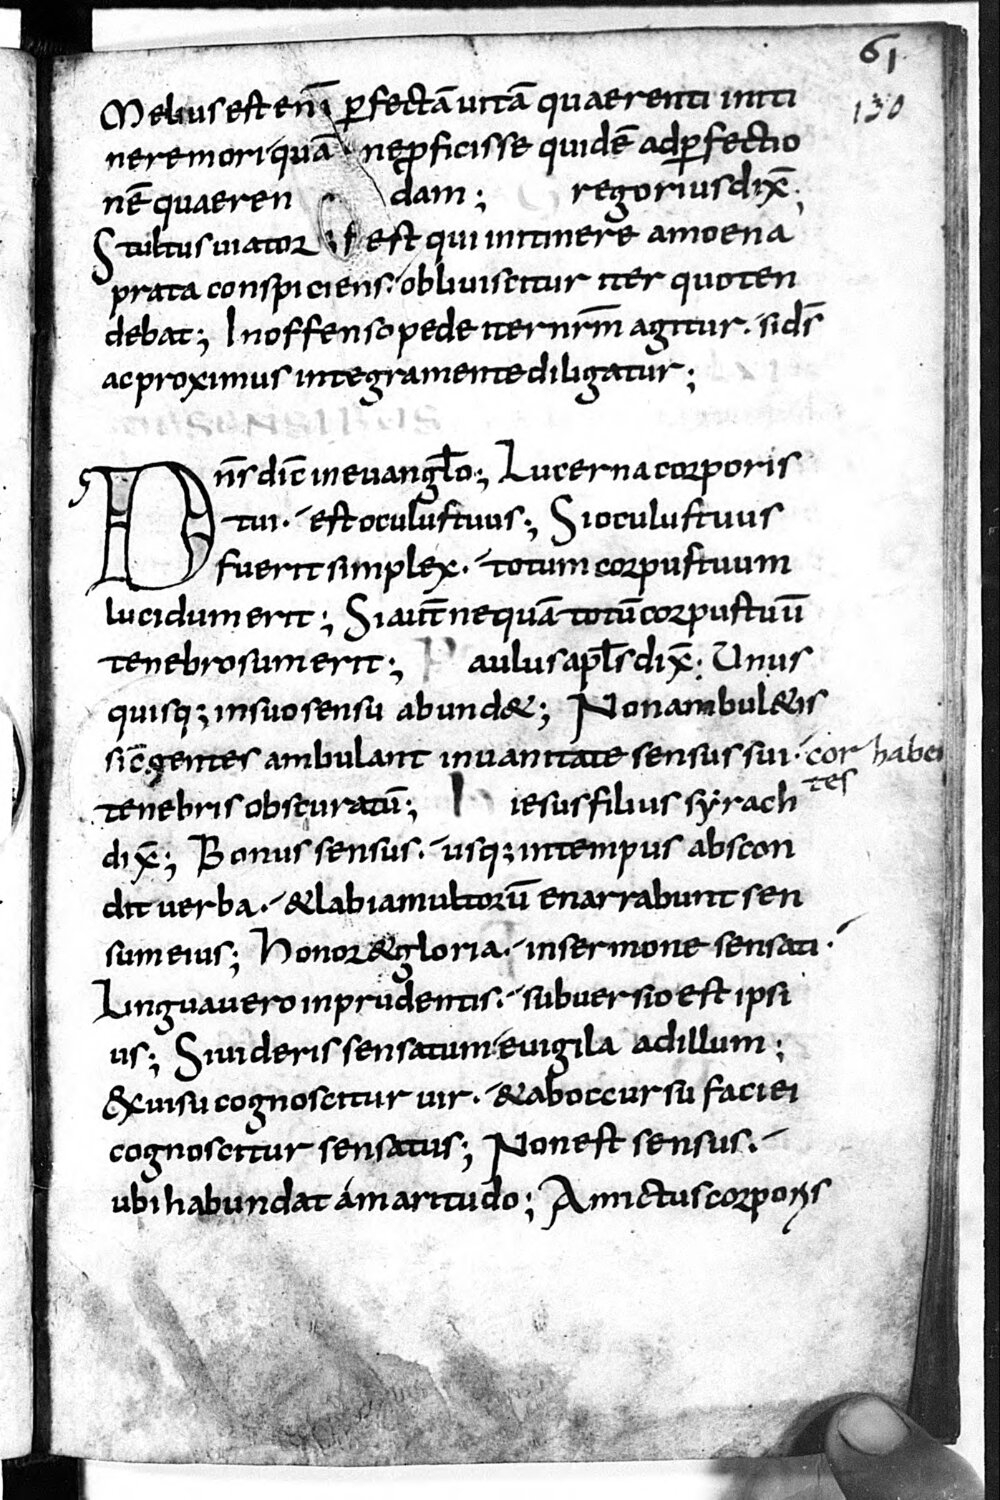 61
130
Melius est enī p̄fectā uitā quaerenti in iti
nere mori quā · neꝓficisse quidē ad p̄fectio
nē quaeren dam; regorius dix̄;
Stultus uiator est qui in itinere amoena
prata conspiciens · obliuiscitur iter quo ten
debat; Inoffenso pede iter nr̄m agitur · si ds̄
ac proximus integra mente diligatur;
Dn̄s dic̄ in euangl̄o; Lucerna corporis
tui · est oculus tuus; Si oculus tuus
fuerit simplex · totum corpus tuum
lucidum erit; Si aut̄ nequā totū corpus tuū
tenebrosum erit; Paulus apl̄s dix̄; Unus
quisq; in suo sensu abund&; Non ambul&is
sic̄ gentes ambulant in uanitate sensus sui · cor haben
tes
tenebris obscuratū; h iesus filius syrach
dix̄; Bonus sensus · usq; in tempus abscon
dit uerba · & labia multorū enarrabunt sen
sum eius; Honor & gloria · in sermone sensati ·
Lingua uero inprudentis · subuersio est ipsi
us; Si uideris sensatum euigila ad illum;
Ex uisu cognoscitur uir · & ab occursu faciei
cognoscitur sensatus; Non est sensus ·
ubi habundat amaritudo; Amictus corporis